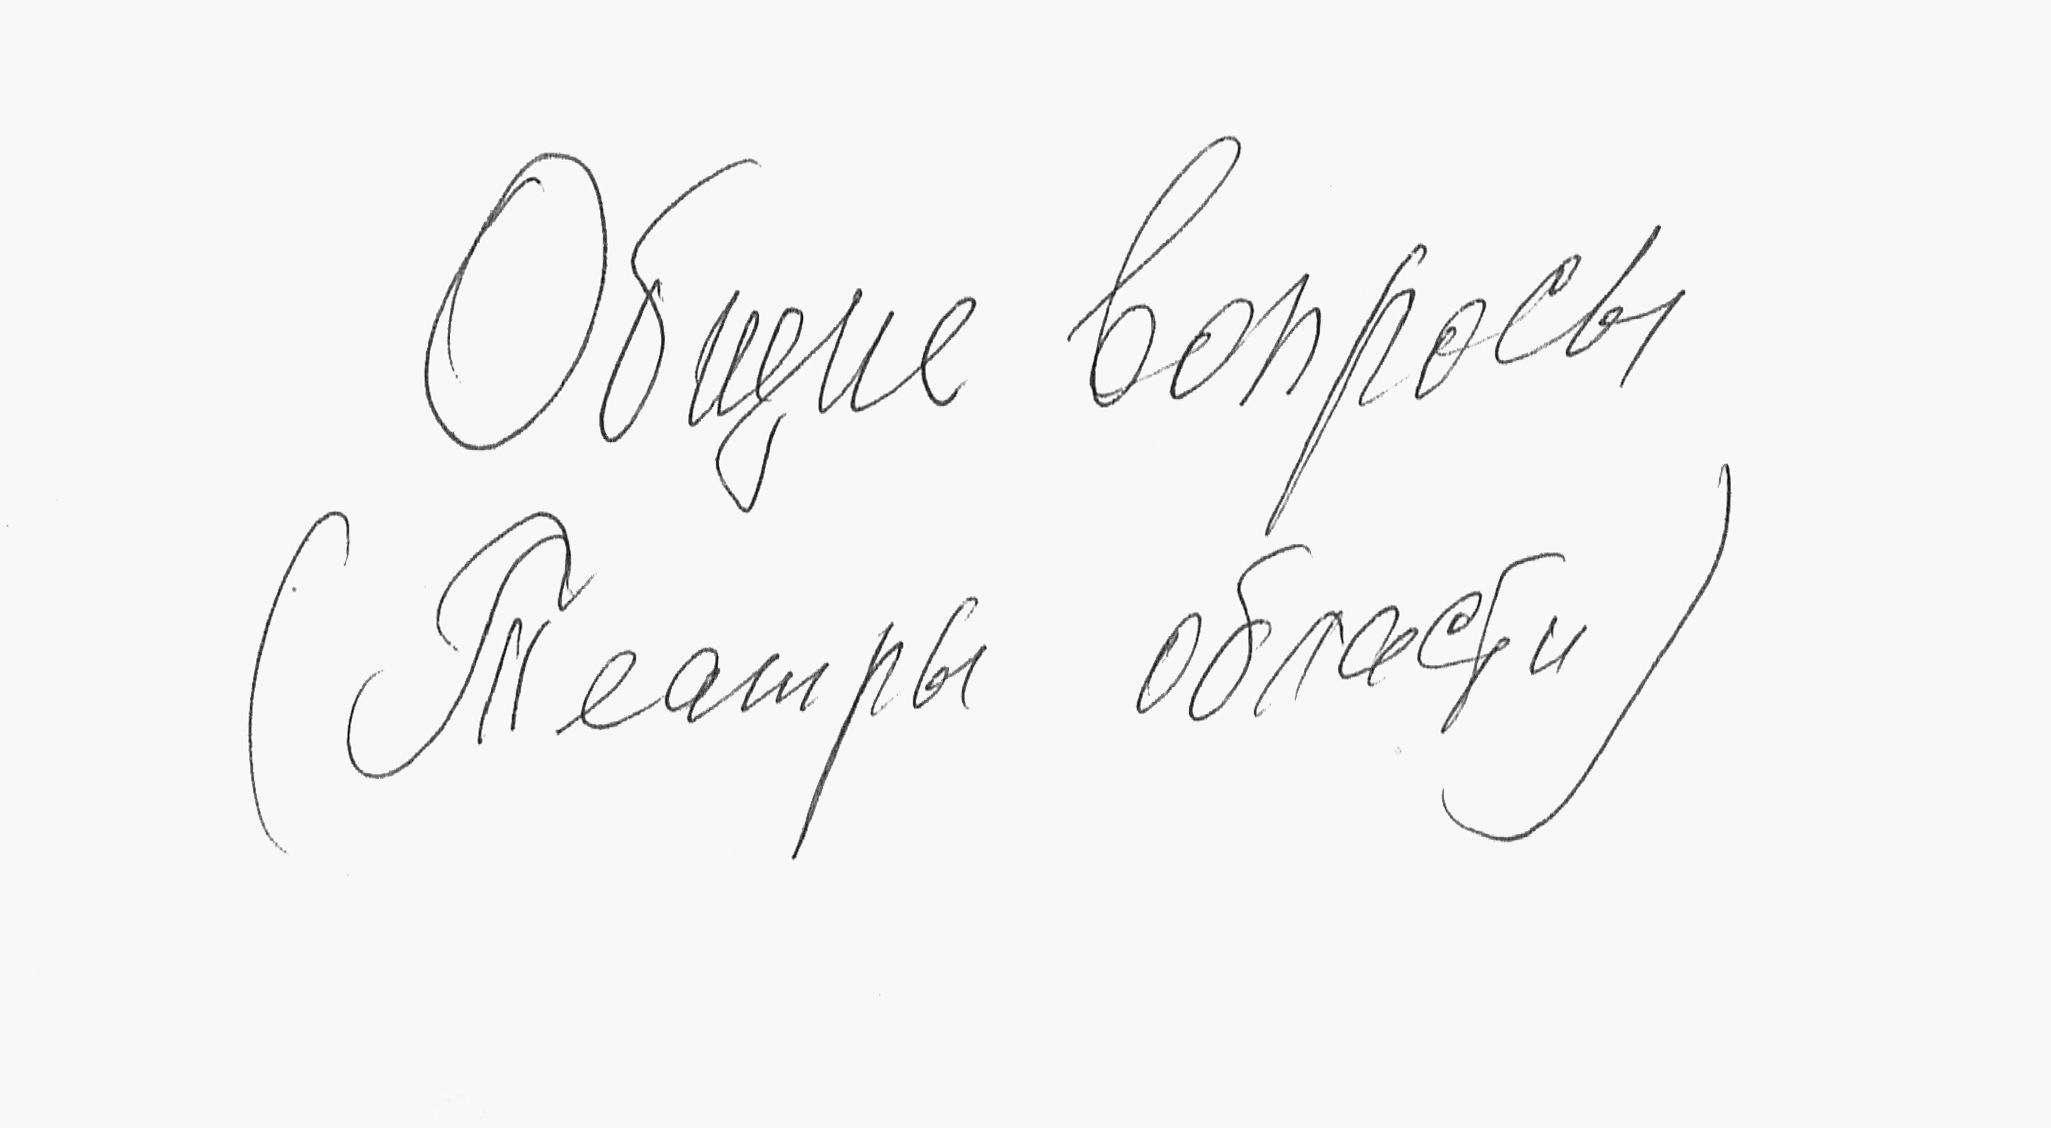 Общие вопросы
(Театры области)